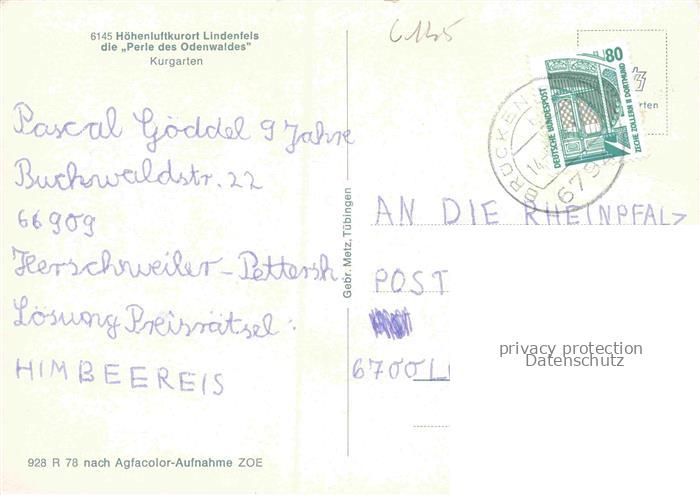 6145 Höhenluftkurort Lindenfels
die „Perle des Odenwaldes"
Kurgarten
Pascal Göddel 9 Jahre
Buchwaldstr. 22
66909
Herschweiler-Pettersh.
Lösung Preisrätsel:
HIMBEEREIS
928 R 78 nach Agfacolor-Aufnahme ZOE
Gebr. Metz, Tübingen
80
DEUTSCHE BUNDESPOST
ZECHE ZOLLERN II DORTMUND
BRÜCKEN
679
AN DIE RHEINPFALZ
POST
6700 L
privacy protection
Datenschutz